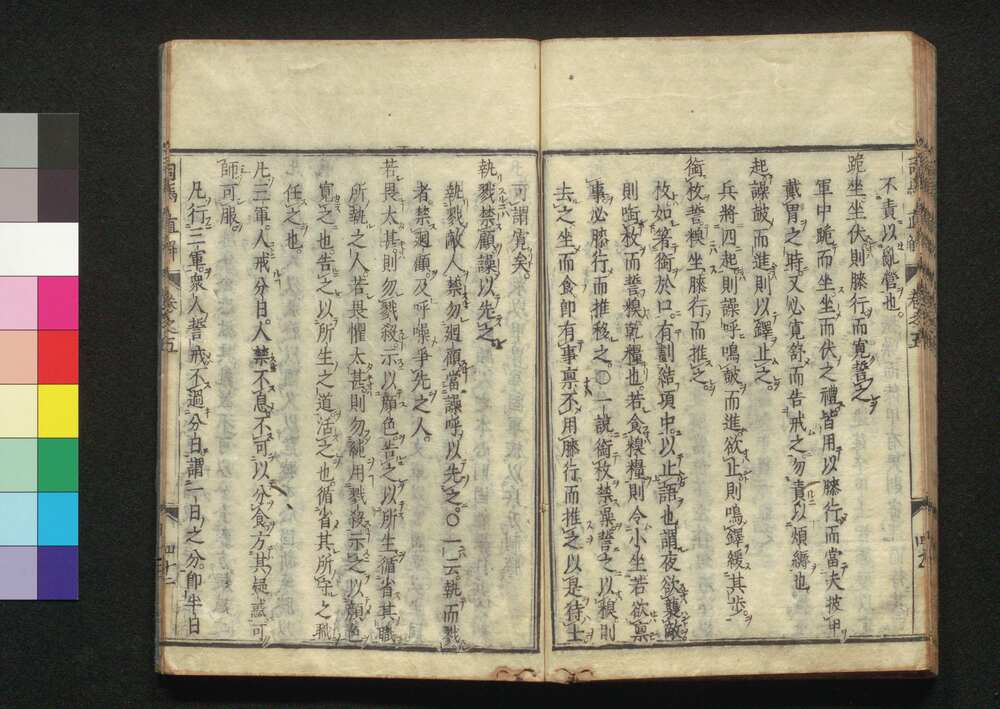 不責以亂管也
跪坐坐伏則膝行而寛誓之
軍中跪而坐坐而伏之禮皆用以膝行而當夫披甲
戴胄之時又必寛舒而告戒之勿責以煩縟也
起譟鼓而進則以鐸止之
兵將四起則譟呼鳴鼓而進欲止則鳴鐸緩其歩
銜枚誓糗坐膝行而推之
枚如箸銜於口有結項中以止語也謂夜欲襲敵
則銜枚而誓糗乾糧也若食糗糧則令小坐若欲稟
事必膝行而推移之○一說銜枚禁喿誓之以糗則
去之坐而食即有事稟不用膝行而推之以是待士
可謂寛矣
執戮禁顧譟以先之
執戮敵人禁勿廻顧當譟呼以先之○一云執而戮
者禁廻顧及呼噪爭先之人
若畏太甚則勿戮殺示以顔色告之以所生循省其職
所執之人若畏懼太甚則勿純用戮殺示之以顔色
寛之也告之以所生之道活之也循省其所守之職
任之也
凡三軍人戒分日人禁不息不可以分食方其疑惑可
師可服
凡行三軍衆人誓戒不過分日謂一日之分即半日
直解 卷之五 四十二